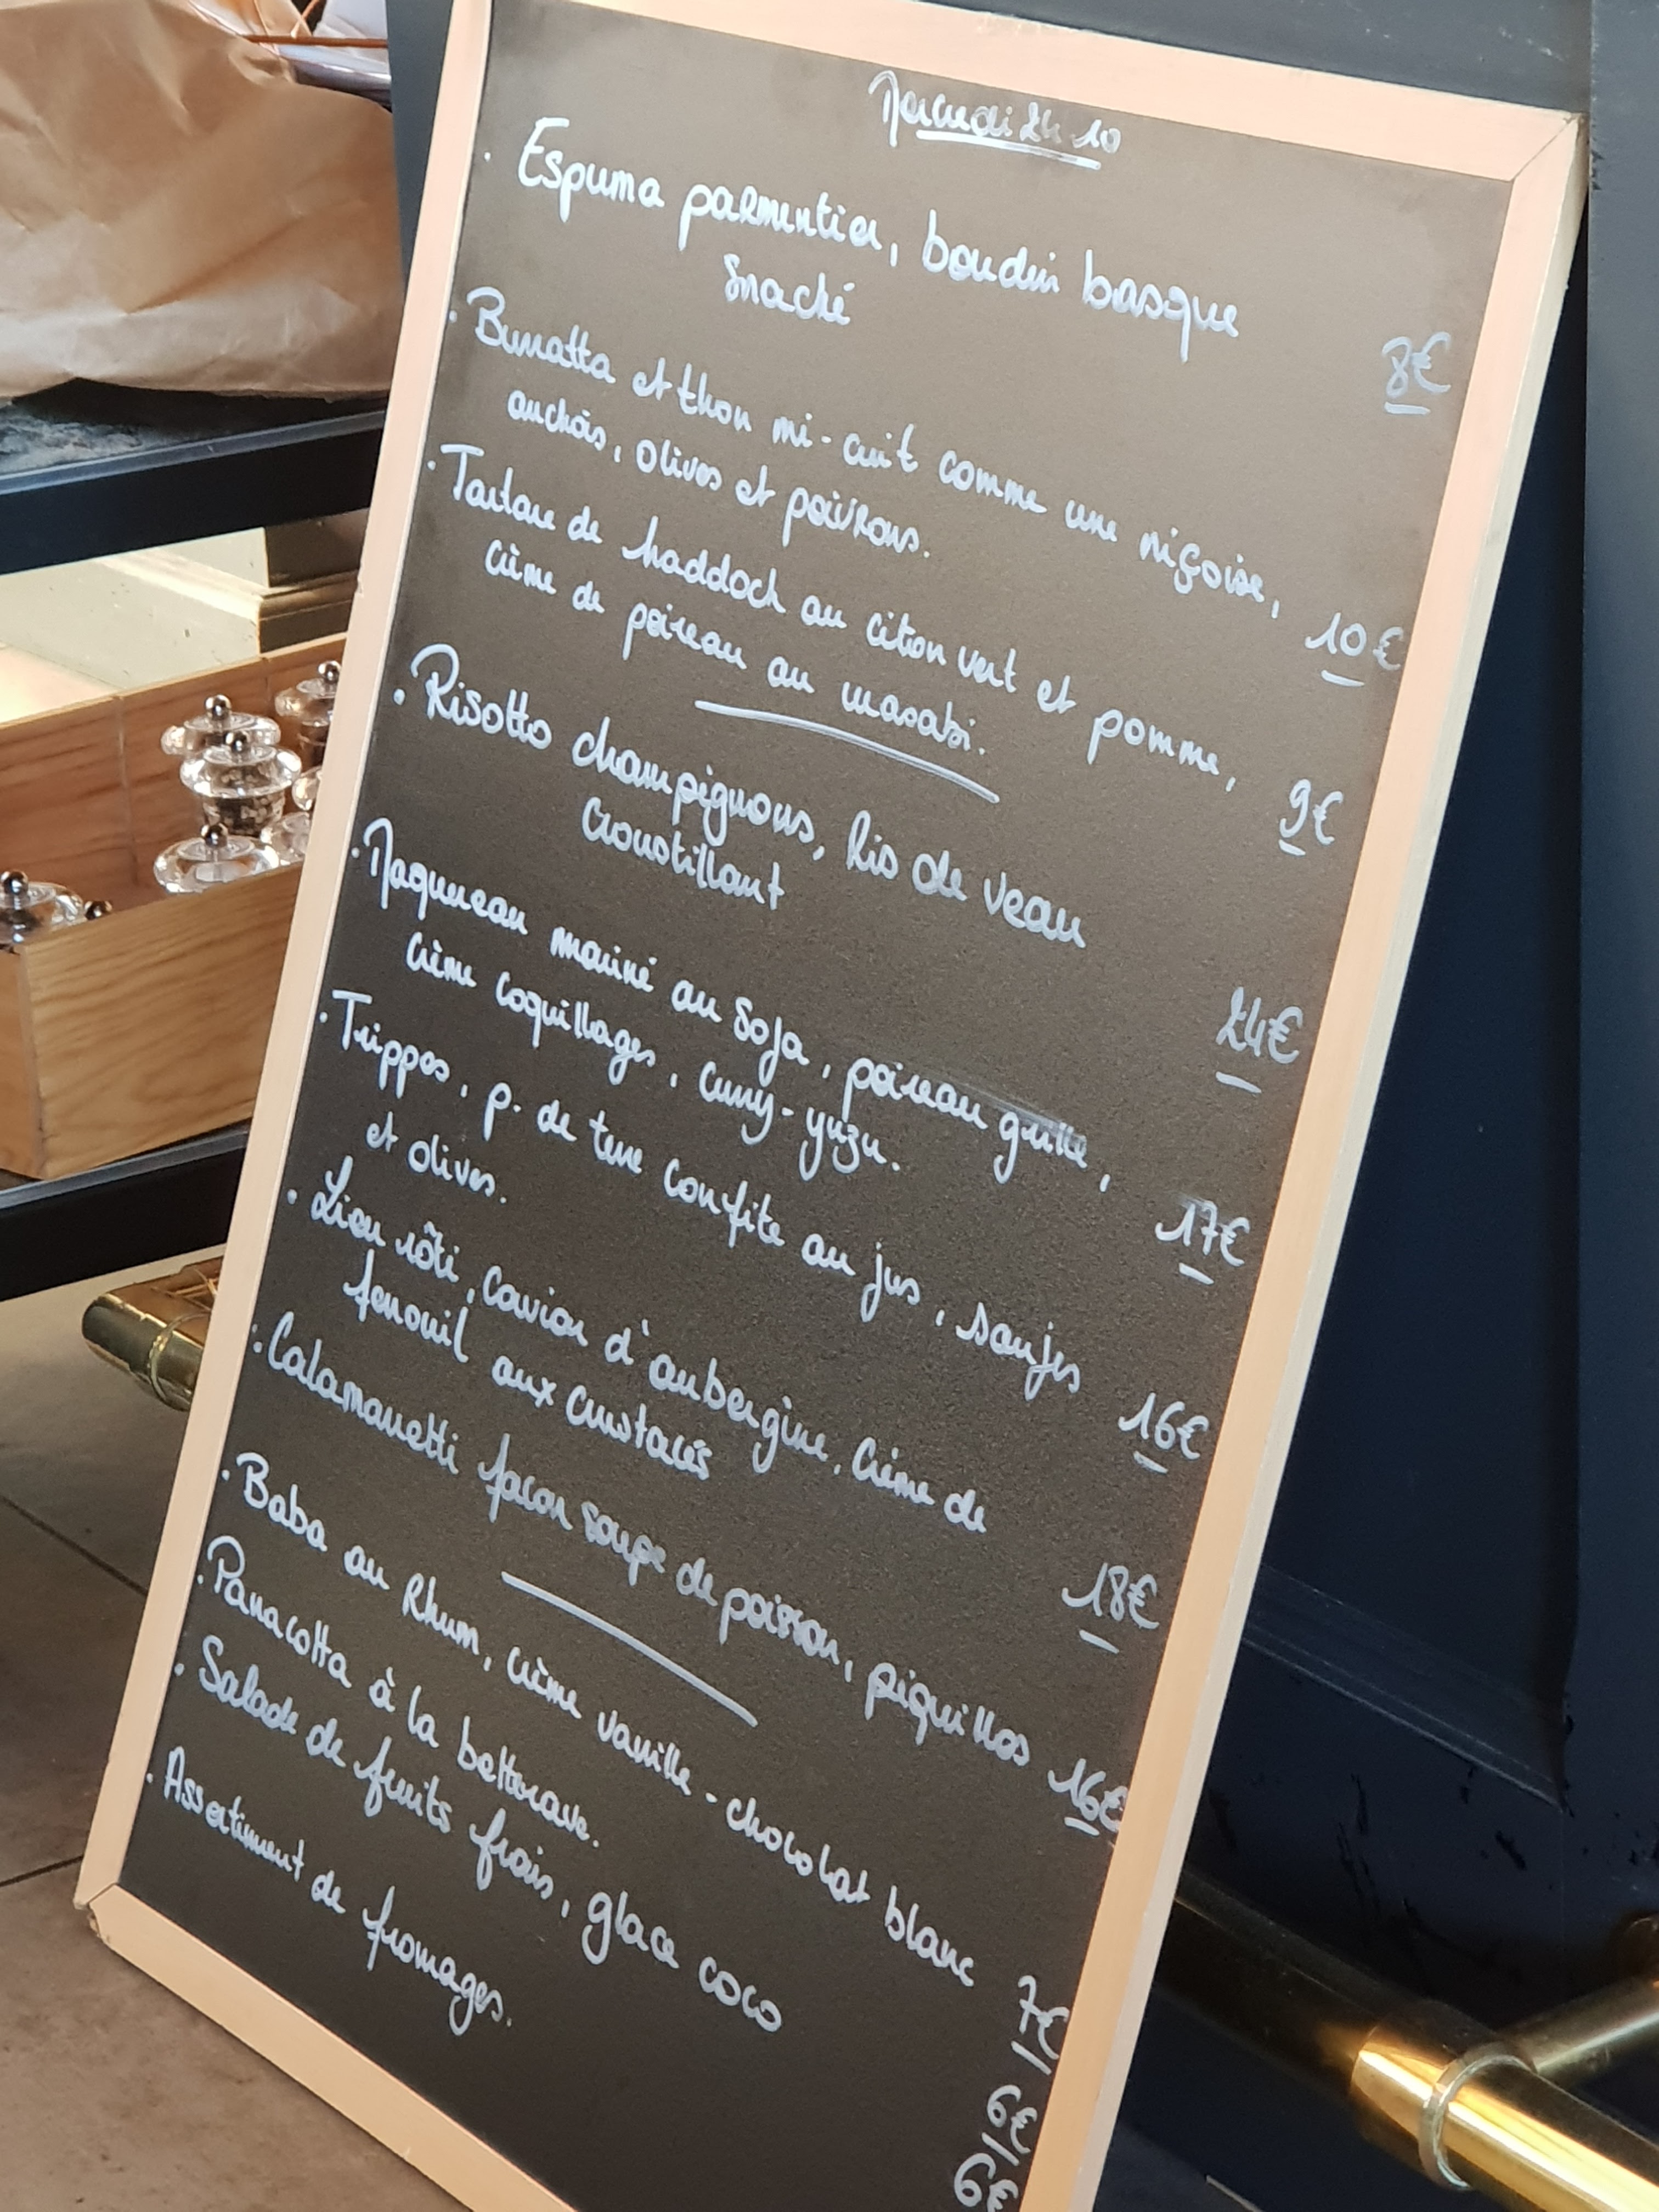 Mercredi 24.10
. Espuma parmentier, boudin basque
snacké 8€
. Burratta et thon mi-cuit comme une niçoise,
anchois, olives et poivrons. 10€
. Tartare de haddock au citron vert et pomme,
crème de poireau au wasabi. 9€
. Risotto champignons, Ris de veau
croustillant 24€
. Maquereau mariné au soja, poireau grillé,
crème coquillages, curry-yuzu. 17€
. Trippes, p. de terre confite au jus, sauges
et olives. 16€
. Lieu rôti, caviar d'aubergine, crème de
fenouil aux crustacés 18€
. Calamaretti façon soupe de poisson, piquillos 16€
. Baba au Rhum, crème vanille-chocolat blanc 7€
. Panacotta à la betterave. 6€
. Salade de fruits frais, glace coco 6€
. Assortiment de fromages.